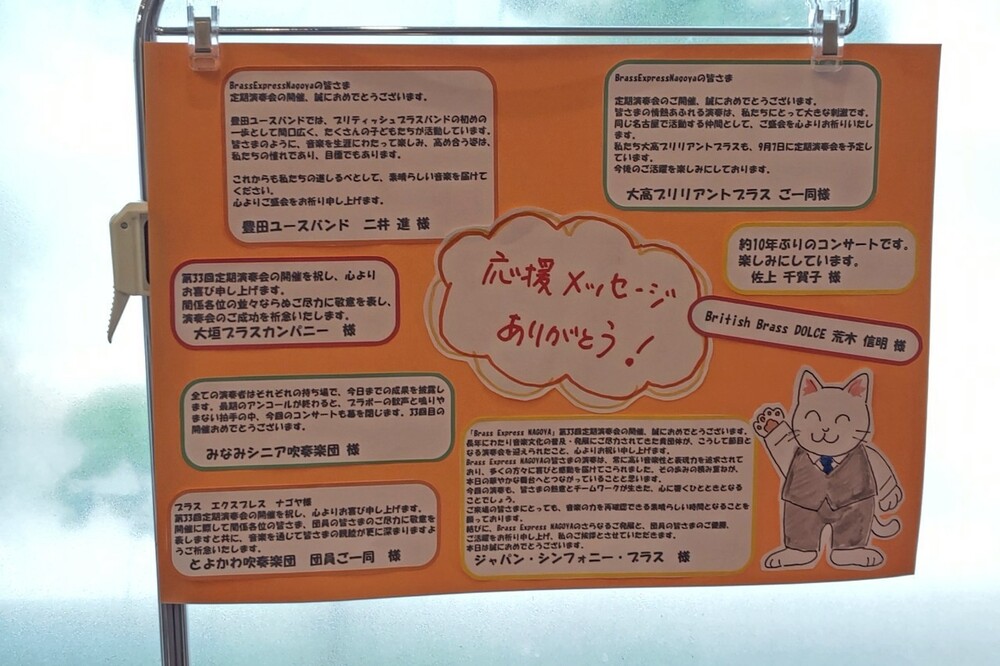 BrassExpressNagoyaの皆さま
定期演奏会の開催、誠におめでとうございます。
豊田ユースバンドでは、ブリティッシュブラスバンドの初めの
一歩として間口広く、たくさんの子どもたちが活動しています。
皆さまのように、音楽を生涯にわたって楽しみ、高め合う姿は、
私たちの憧れであり、目標でもあります。
これからも私たちの道しるべとして、素晴らしい音楽を届けて
ください。
心よりご盛会をお祈り申し上げます。
豊田ユースバンド 二井 進 様
BrassExpressNagoyaの皆さま
定期演奏会のご開催、誠におめでとうございます。
皆さまの情熱あふれる演奏は、私たちにとって大きな刺激です。
同じ名古屋で活動する仲間として、ご盛会を心よりお祈りいたし
ます。
私たち大高ブリリアントブラスも、9月7日に定期演奏会を予定し
ています。
今後のご活躍を楽しみにしております。
大高ブリリアントブラス ご一同様
約10年ぶりのコンサートです。
楽しみにしています。
佐上 千賀子 様
第33回定期演奏会の開催を祝し、心より
お喜び申し上げます。
関係各位の並々ならぬご尽力に敬意を表し、
演奏会のご成功を祈念いたします。
大垣ブラスカンパニー 様
応援メッセージ
ありがとう!
British Brass DOLCE 荒木 信明 様
全ての演奏者はそれぞれの持ち場で、今日までの成果を披露し
ます。最期のアンコールが終わると、ブラボーの歓声と鳴りや
まない拍手の中、今回のコンサートも幕を閉じます。33回目の
開催おめでとうございます。
みなみシニア吹奏楽団 様
「Brass Express NAGOYA」第33回定期演奏会の開催、誠におめでとうございます。
長年にわたり音楽文化の普及・発展にご尽力されてきた貴団体が、こうして節目と
なる演奏会を迎えられたこと、心よりお祝い申し上げます。
Brass Express NAGOYAの皆さまの演奏は、常に高い音楽性と表現力を追求されて
おり、多くの方々に喜びと感動を届けてこられました。その歩みの積み重ねが、
本日の華やかな舞台へとつながっていることと思います。
今回の演奏も、皆さまの熱意とチームワークが生きた、心に響くひとときとなる
ことでしょう。
ご来場の皆さまにとっても、音楽の力を再確認できる素晴らしい時間となることを
願っております。
結びに、Brass Express NAGOYAのさらなるご発展と、団員の皆さまのご健勝、
ご活躍をお祈り申し上げ、私のご挨拶とさせていただきます。
本日は誠におめでとうございます。
ジャパン・シンフォニー・ブラス 様
ブラス エクスプレス ナゴヤ様
第33回定期演奏会の開催を祝し、心よりお喜び申し上げます。
開催に際して関係各位の皆さま、団員の皆さまのご尽力に敬意を
表しますと共に、音楽を通じて皆さまの親睦が更に深まりますよ
うご祈念いたします。
とよかわ吹奏楽団 団員ご一同 様